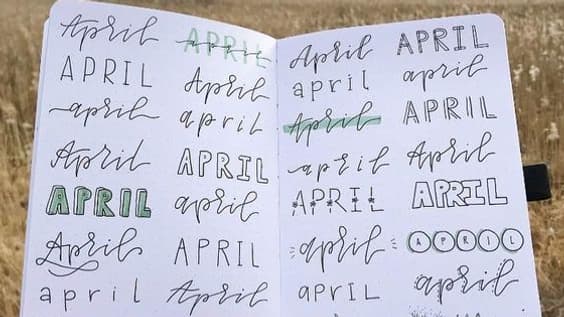 April
APRIL
april
April
APRIL
April
april
APRIL
april
April
april
APRIL
april
APRIL
April
April
april
April
april
APRIL
april
aPRIL
APRIL
april
APRIL
April
APRIL
APRIL
april